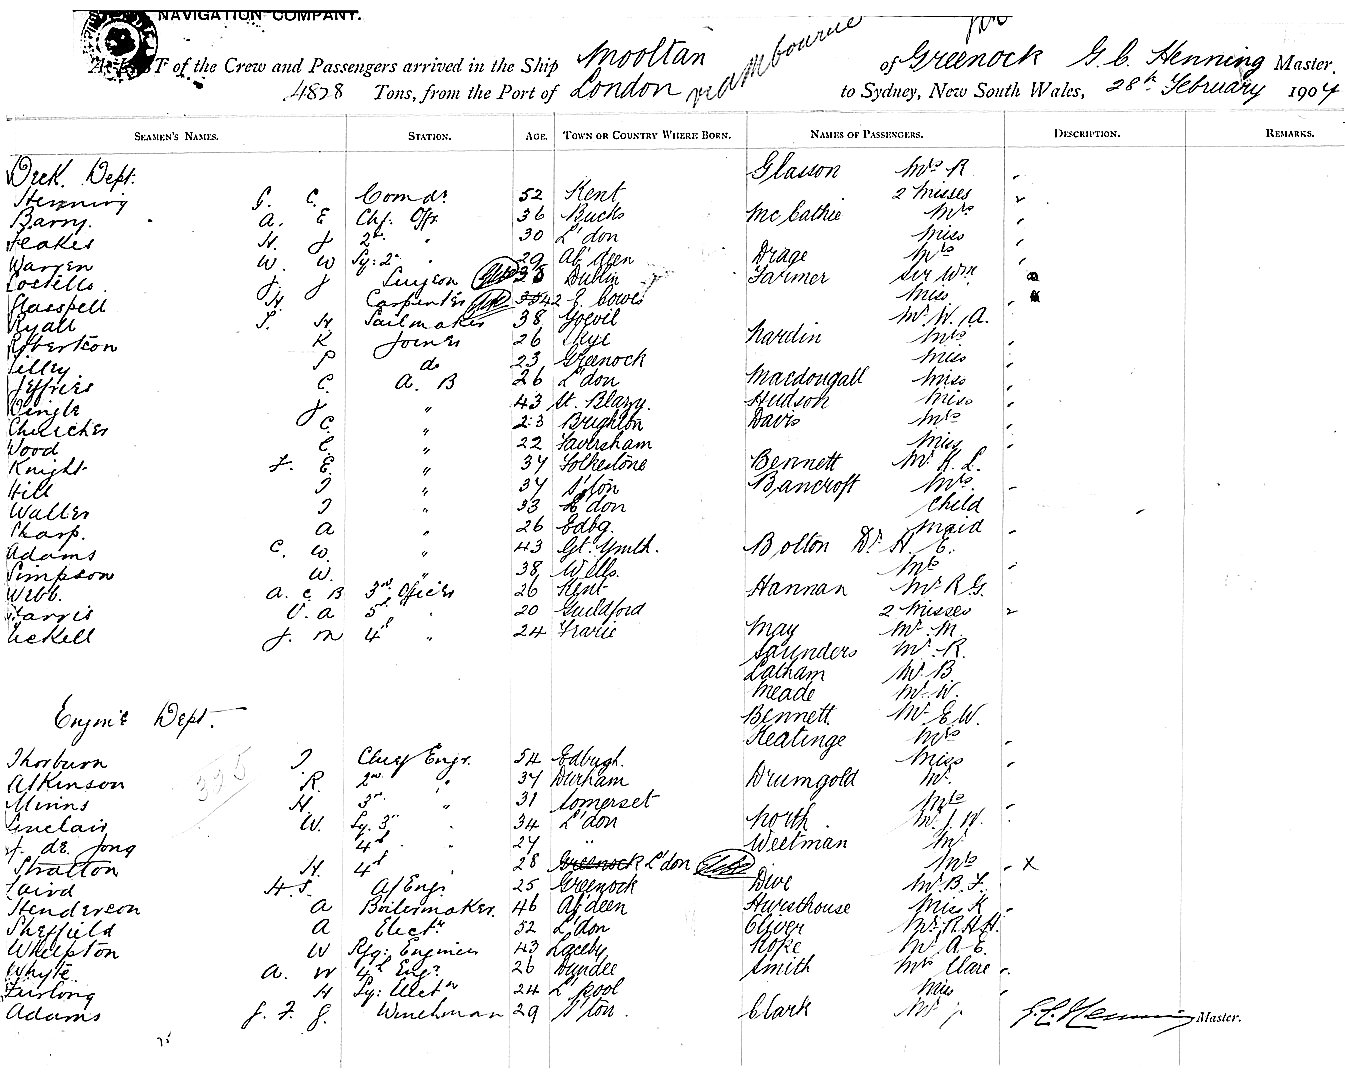 NAVIGATION COMPANY.
A LIST of the Crew and Passengers arrived in the Ship Mooltan of Greenock G. C. Henning Master.
4828 Tons, from the Port of London via Melbourne to Sydney, New South Wales, 28th February 1904
SEAMEN'S NAMES. STATION. AGE. TOWN OR COUNTRY WHERE BORN. NAMES OF PASSENGERS. DESCRIPTION. REMARKS.
Deck Dept. Glasson Mrs R
Henning G. C. Comdr 52 Kent 2 Misses
Barry A. E Chf. Offr 36 Bucks McCathie Mrs
H. J 2nd " 30 L'don Miss
Warren W. W Sy: 2nd " 29 Ab'deen Drage Mrs
Costello J J Surgeon Dublin Farmer Sir Wm
Glasspell H. Carpenter 42 E. Cowes Miss
Ryall S. H Sailmaker 38 Yeovil Mr W. A.
Robertson K Joiner 26 Skye Hardin Mrs
Lilley P do 23 Greenock Miss
Jeffries C. A. B 26 L'don Macdougall Miss
Dingle J " 43 St. Blazy. Hudson Miss
Churcher C. " 23 Brighton Davis Mrs
Wood E. " 22 Faversham Miss
Knight F. E. " 37 Folkestone Bennett Mr H. L.
Hill J " 37 S'ton Bancroft Mrs
Waller J " 33 L'don Child
Sharp. A " 26 Edbg. Maid
Adams C. W. " 43 Gt. Ymth. Bolton Dr H. E.
Simpson W. " 38 Wells. Mrs
Webb. A. C B 3rd Officer 26 Kent Hannan Mr R G.
V. A 5th " 20 Guildford 2 Misses
J. M 4th " 24 May Mr M.
Saunders Mr R.
Latham Mr B.
Meade Mr W.
Engin'r Dept. Bennett Mr E W.
Keatinge Mrs
Thorburn J. Chief Engr. 54 Edbugh. Miss
Atkinson R. 2nd " 37 Durham Drumgold Mr
Minns H. 3rd " 31 Somerset Mrs
Sinclair W. Sy. 3rd " 34 L'don North Mr J. W.
de Jong 4th " 27 " Weetman Mr
Stratton H. 4th " 28 Greenock L'don Mrs x
Laird H. S. A/Engr 25 Greenock Dive Mr B. F.
Henderson A Boilermaker. 46 Ab'deen Hursthouse Miss K
Sheffield A Electn 52 L'don Oliver Mr R. H. H.
Whelpton W Rfg: Engineer 43 Laceby Hope Mr A E.
Whyte A. W 4th Engr 26 Dundee Smith Mrs Clare
Furlong H Sy: Electn 24 L'pool Miss
Adams J. F. G. Winchman 29 S'ton. Clark Mr J
G. C. Henning Master.
335